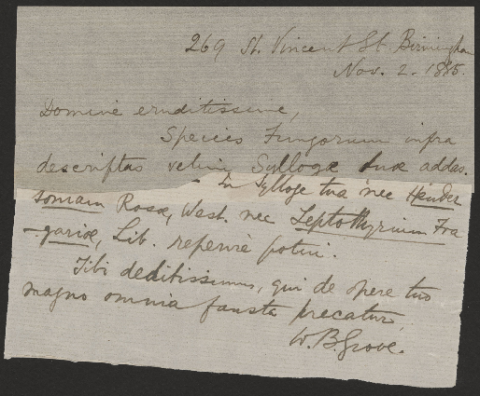 269 St. Vincent St. Birmingham
Nov. 2. 1885.
Domine eruditissime,
Species Fungorum infra
descriptas velim Sylloge tuæ addas.
In Sylloge tua nec Hender
soniam Rosæ, West. nec Leptothyrium Fra
-gariæ, Lib. reperire potui.
Tibi deditissimus, qui de opere tuo
magno omnia fausta precatur,
W. B. Grove.